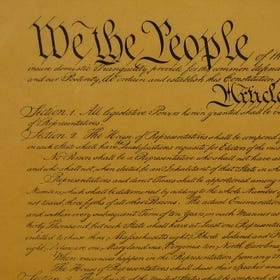 We the People of the
insure domestic Tranquility, provide for the common defence
and our Posterity, do ordain and establish this Constitution
Article
Section. 1. All legislative Powers herein granted shall be
Representatives.
Section. 2. The House of Representatives shall be composed
in each State shall have the Qualifications requisite for Electors of the
No Person shall be a Representative who shall not have
and who shall not, when elected, be an Inhabitant of that State in
Representatives and direct Taxes shall be apportioned among
Numbers, which shall be determined by adding to the whole Number
not taxed, three fifths of all other Persons. The actual Enumeration
and within every subsequent Term of ten Years, in such Manner
thirty Thousand, but each State shall have at Least one Representative
entitled to chuse three, Massachusetts eight, Rhode Island and
eight, Delaware one, Maryland six, Virginia ten, North Carolina
When vacancies happen in the Representation from any
The House of Representatives shall chuse their
Section. 3. The Senate of the United States shall be